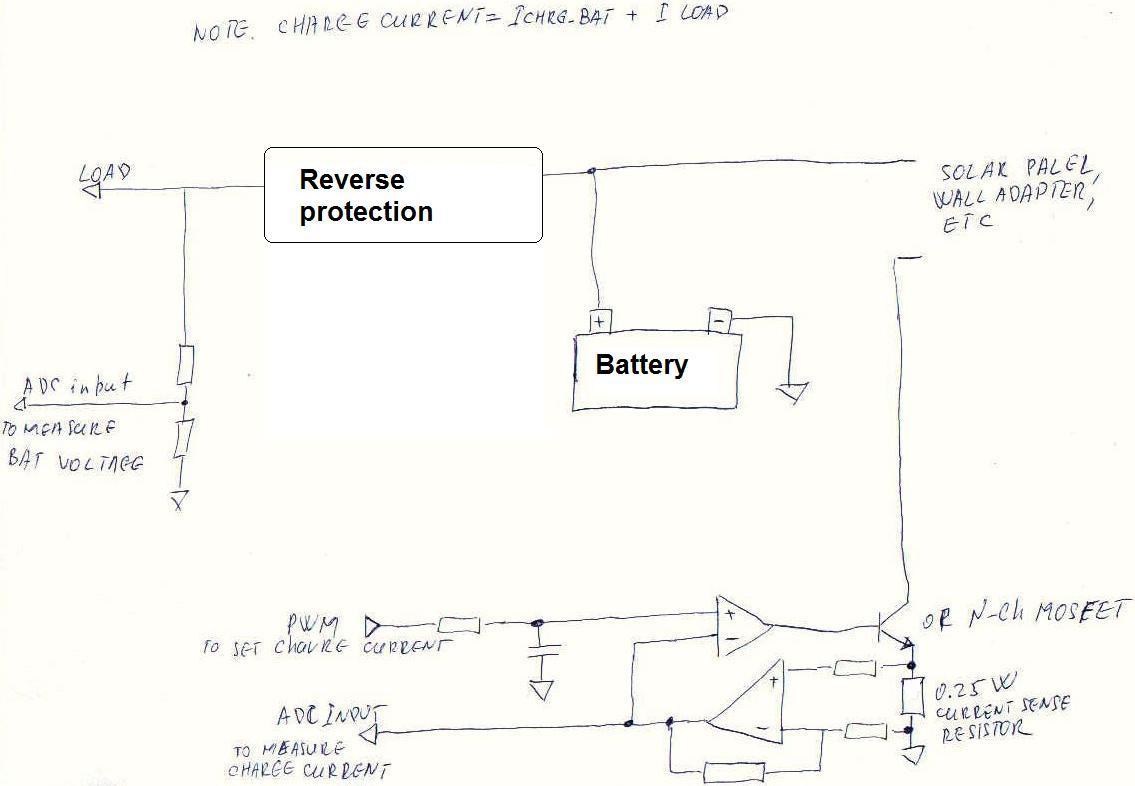 NOTE. CHARGE CURRENT = ICHRG-BAT + I LOAD
LOAD
Reverse
protection
SOLAR PALEL,
WALL ADAPTER,
ETC
+
-
Battery
ADC input
TO MEASURE
BAT VOLTAGE
PWM
TO SET CHAVRE CURRENT
+
-
OR N-Ch MOSEET
+
-
0.25 W
CURRENT SENSE
RESISTOR
ADC INPUT
TO MEASURE
CHARGE CURRENT